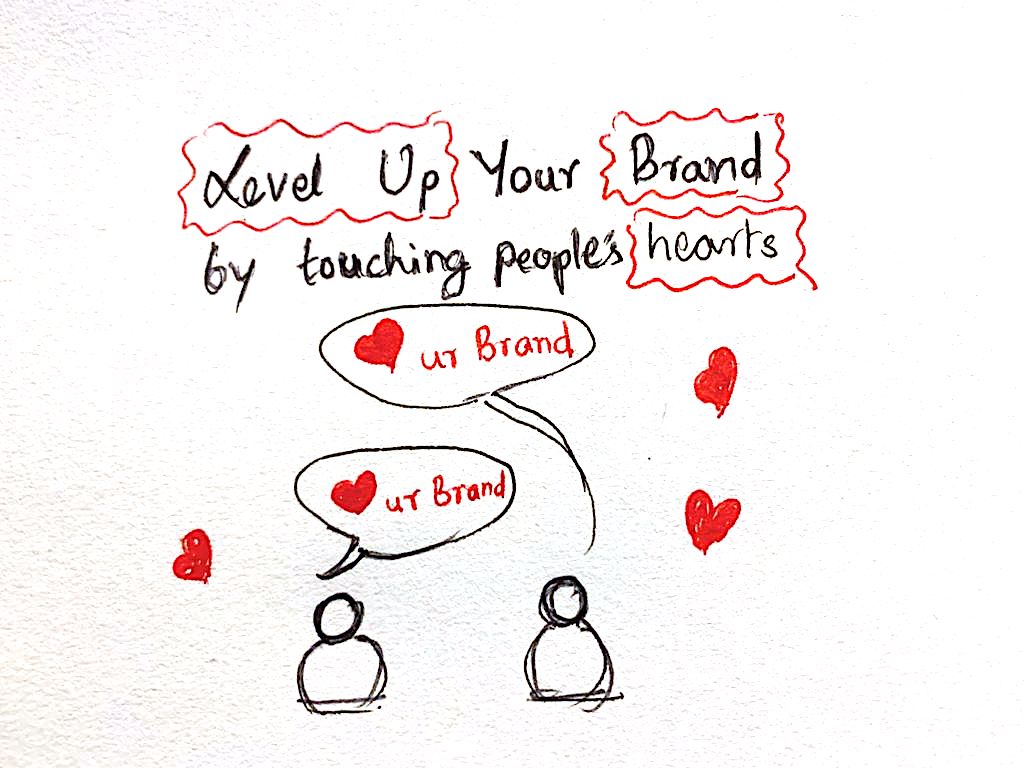 Level Up Your Brand
by touching people's hearts
ur Brand
ur Brand